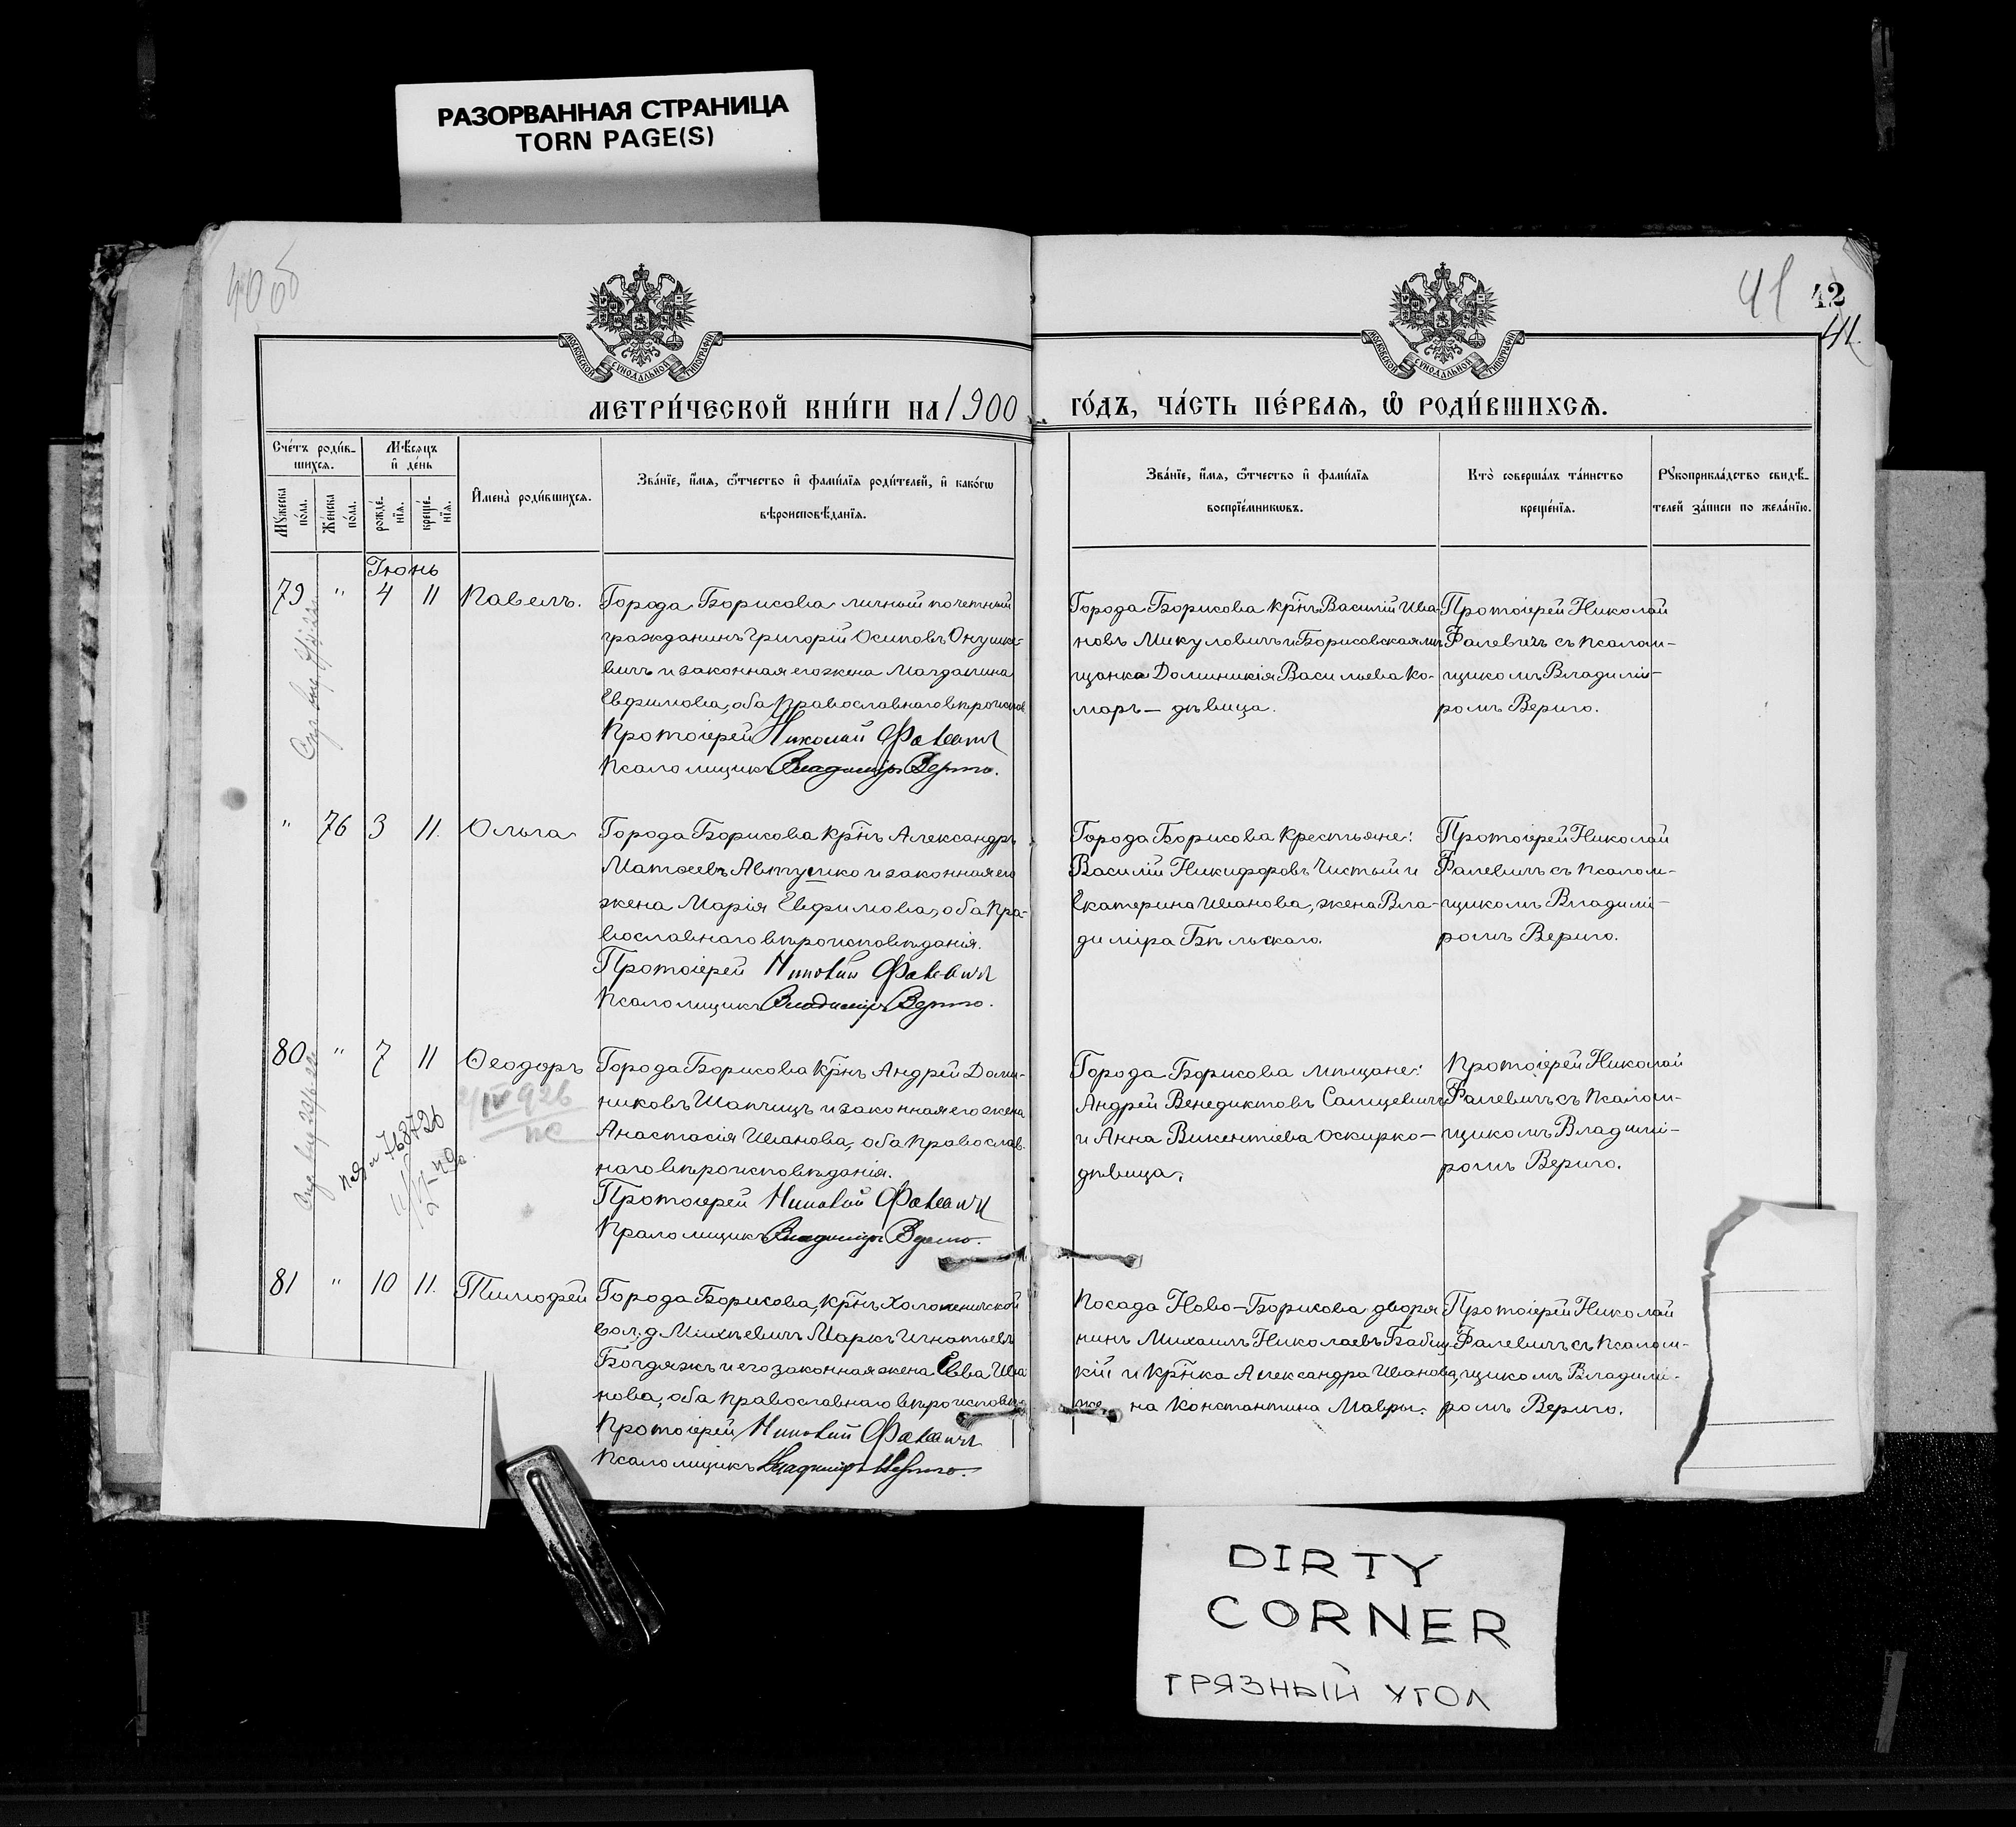 РАЗОРВАННАЯ СТРАНИЦА
TORN PAGE(S)
40 об
41
42
41.
МОСКОВСКОЙ СѴНОДАЛЬНОЙ ТИПОГРАФІИ
МОСКОВСКОЙ СѴНОДАЛЬНОЙ ТИПОГРАФІИ
МЕТРИ́ЧЕСКОЙ КНИ́ГИ НА 1900
ГО́ДЪ, ЧА́СТЬ ПЕ́РВАЯ, Ѡ РОДИ́ВШИХСЯ.
Сче́тъ роди́в-
шихся.
Мѣ́сяцъ
и҆ де́нь
Мꙋжеска
по́ла.
Же́нска
по́ла.
рожде́-
нїя.
креще́-
нїя.
И҆мена̀ роди́вшихся.
Зва́нїе, и҆́мя, ѻ҆́тчество и҆ фами́лїя роди́телей, и҆ како́гѡ
вѣроисповѣ́данїя.
Зва́нїе, и҆́мя, ѻ҆́тчество и҆ фами́лїя
воспрїе́мникѡвъ.
Кто̀ соверша́лъ та́инство
креще́нїя.
Рꙋкоприкла́дство свидѣ́-
телей за́писи по жела́нїю.
Іюнь
79 " 4 11 Павелъ.
Города Борисова личный почетный
гражданинъ Григорій Осиповъ Онушке-
вичъ и законная его жена Магдалина
Евфимова, оба православнаго вѣроиспов.
Протоіерей Николай Фалевичъ
Псаломщикъ Владиміръ Вериго.
Города Борисова кр-нъ Василій Ива-
новъ Микуловичъ и Борисовская мѣ-
щанка Доминикія Васильева Ко-
маръ – дѣвица.
Протоіерей Николай
Фалевичъ съ псалом-
щикомъ Владимі-
ромъ Вериго.
" 76 3 11. Ольга
Города Борисова кр-нъ Александръ
Матѳеевъ Автушко и законная его
жена Марія Евфимова, оба пра-
вославнаго вѣроисповѣданія.
Протоіерей Николай Фалевичъ
Псаломщикъ Владиміръ Вериго.
Города Борисова крестьяне:
Василій Никифоровъ Чистый и
Екатерина Иванова, жена Вла-
диміра Бѣльскаго.
Протоіерей Николай
Фалевичъ съ псалом-
щикомъ Владимі-
ромъ Вериго.
80 " 7 11 Ѳеодоръ
Города Борисова кр-нъ Андрей Доми-
никовъ Шапчицъ и законная его жена
Анастасія Иванова, оба православ-
наго вѣроисповѣданія.
Протоіерей Николай Фалевичъ
Псаломщикъ Владиміръ Вериго.
Города Борисова мѣщане:
Андрей Венедиктовъ Салицевичъ
и Анна Викентіева Оскирко –
дѣвица.
Протоіерей Николай
Фалевичъ съ псалом-
щикомъ Владимі-
ромъ Вериго.
81 " 10 11. Тимофей
Города Борисова, кр-нъ Холопеничской
вол. д. Михѣевичъ Маркъ Игнатьевъ
Богдяжъ и его законная жена Евва Ива-
нова, оба православнаго вѣроисповѣд.
Протоіерей Николай Фалевичъ
Псаломщикъ Владиміръ Вериго.
Посада Ново-Борисова дворя-
нинъ Михаилъ Николаевъ Бабиц-
кій и кр-нка Александра Иванова,
же на Константина Мавры.
Протоіерей Николай
Фалевичъ съ псалом-
щикомъ Владимі-
ромъ Вериго.
DIRTY
CORNER
ГРЯЗНЫЙ УГОЛ